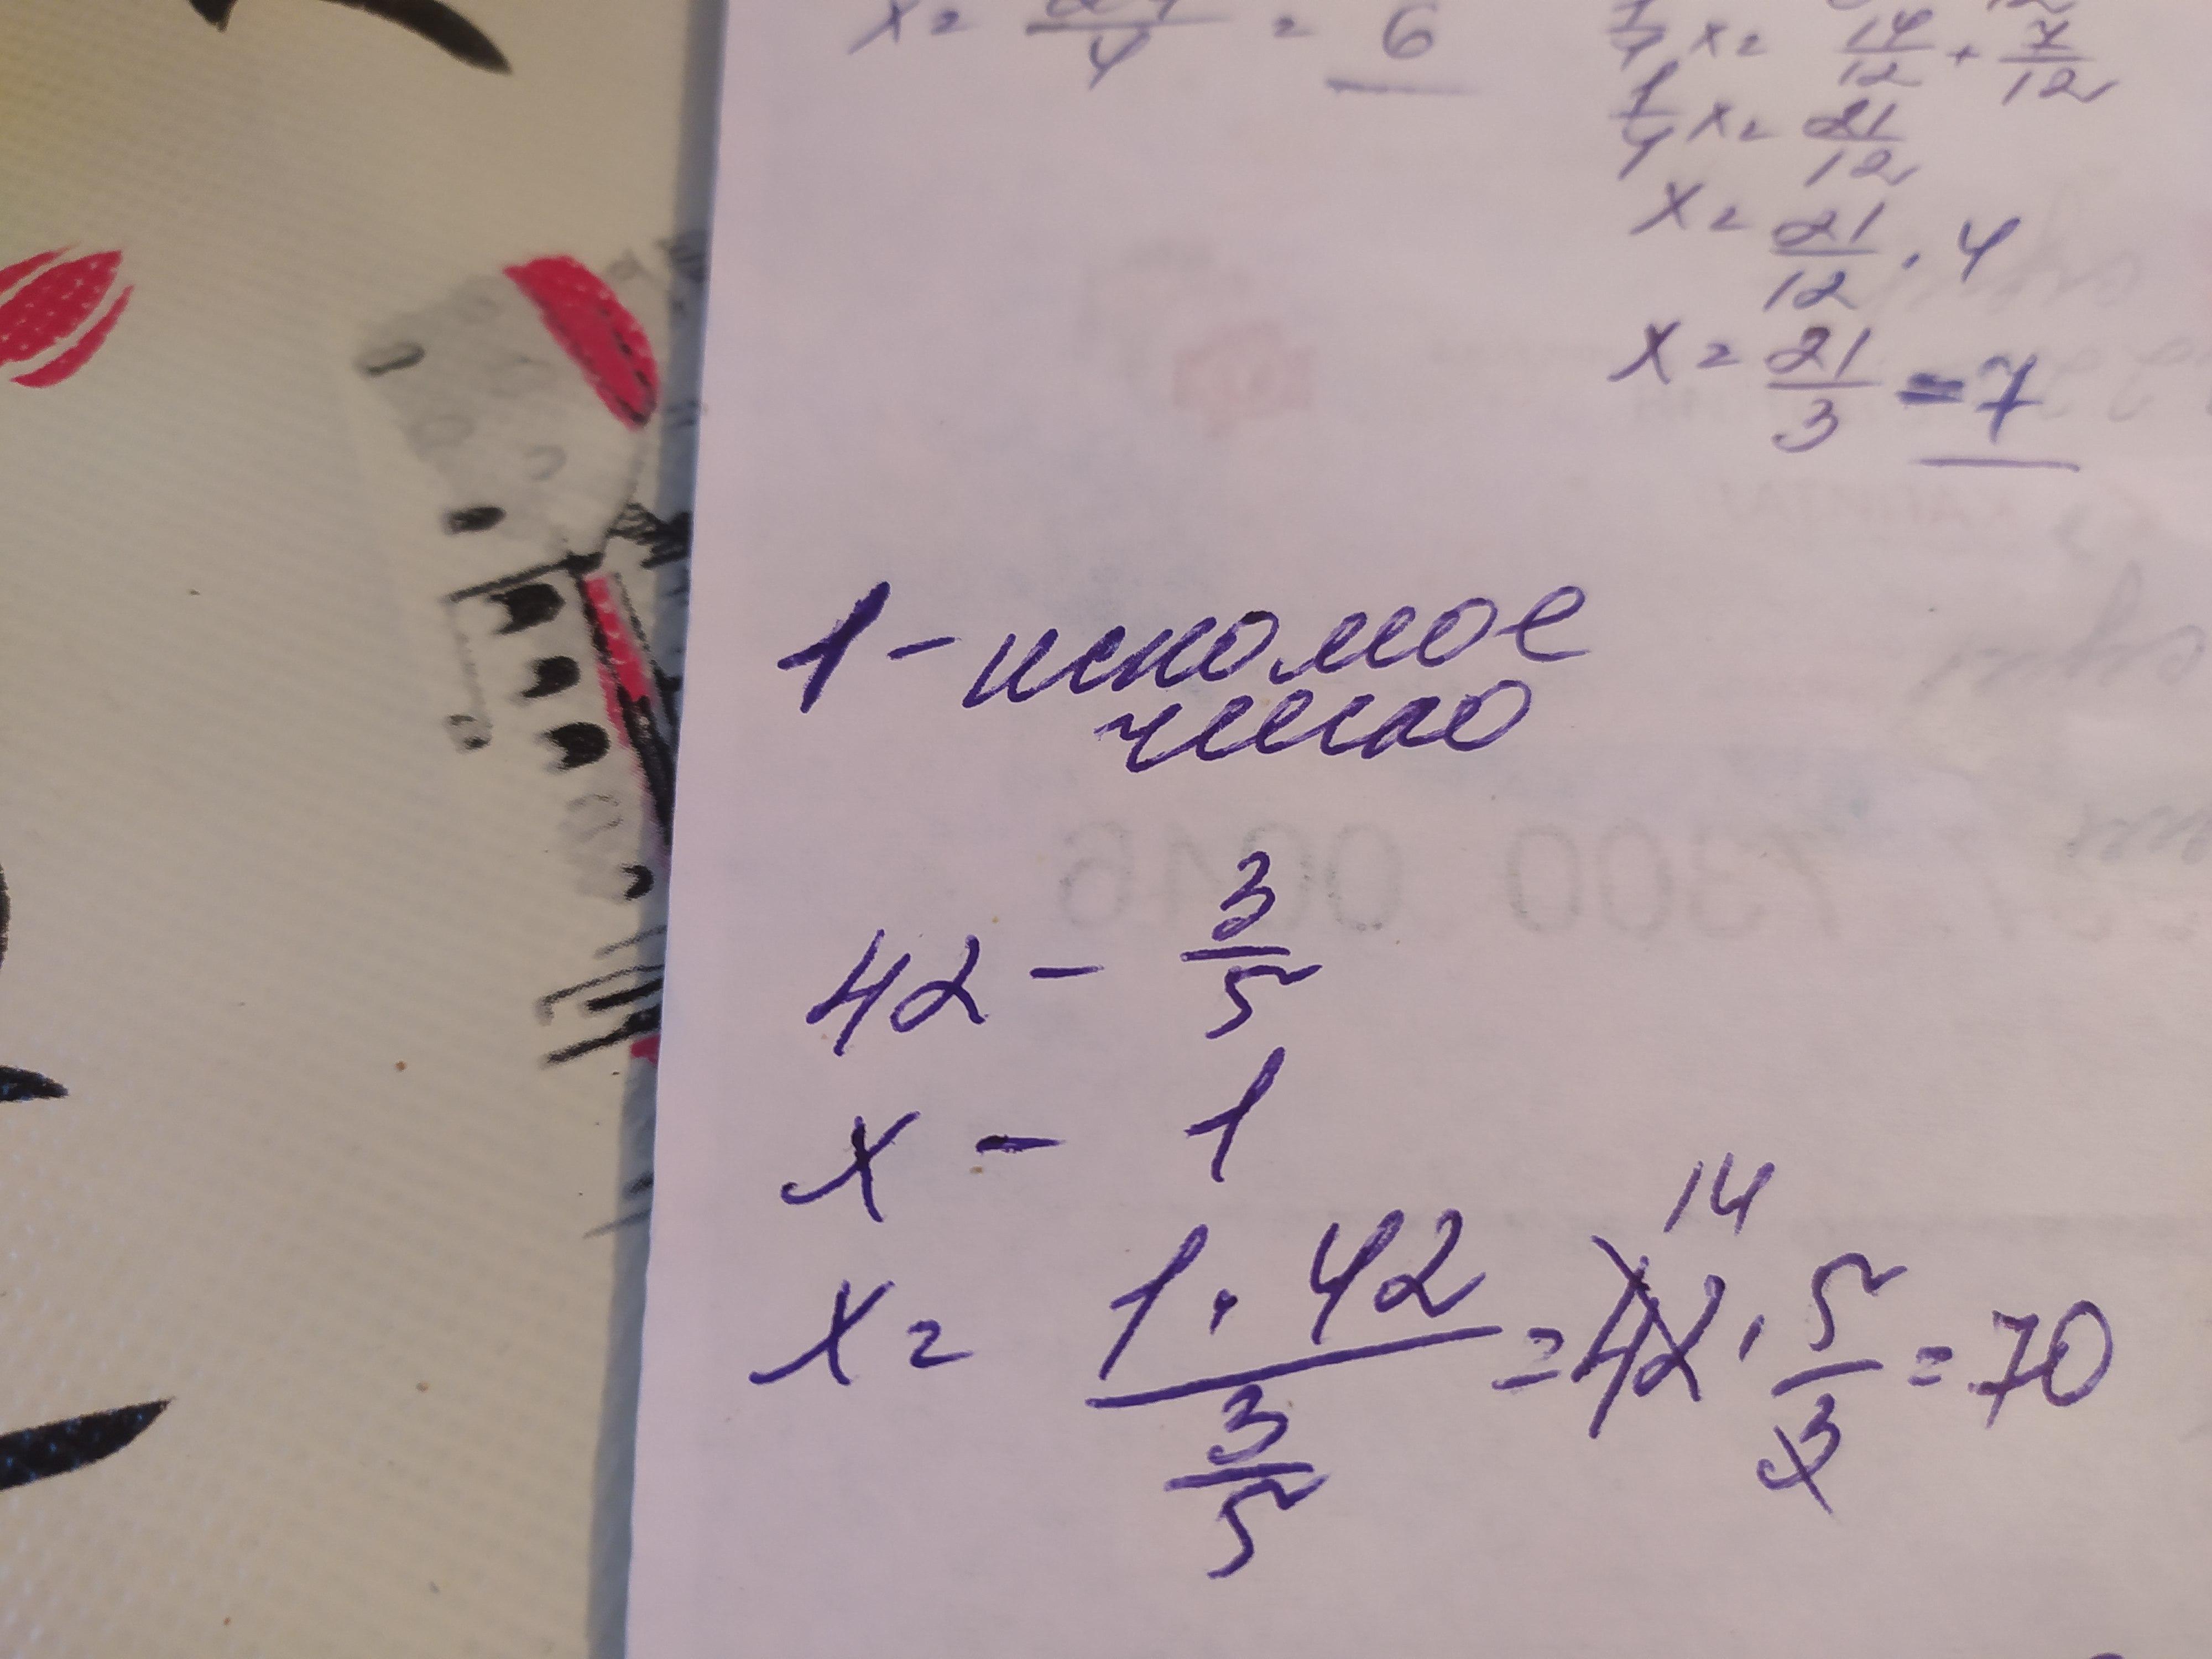 x = 24/4 = 6
1/4 x = 14/12 + 7/12
1/4 x = 21/12
x = 21/12 · 4
x = 21/3 = 7
1 - искомое
число
42 - 3/5
x - 1
x = 1 · 42 / 3/5 = 42 · 5/3 = 70
14